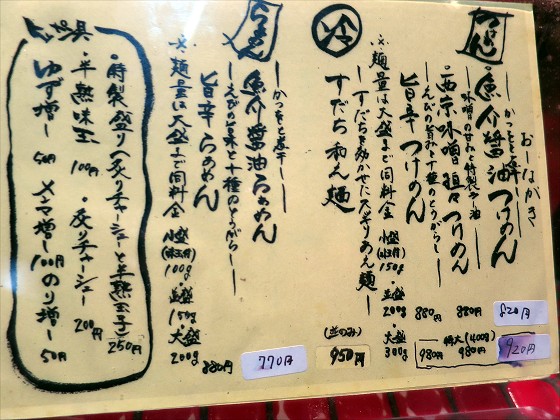 おーながき
つけめん
かつおと煮干し
・魚介醤油つけめん
820円
920円
味噌の甘みと特製ラー油
・西京味噌担々つけめん
880円
特大(400g)
980円
えびの旨みと十種のとうがらし
旨辛つけめん
880円
980円
※麺量は大盛まで同料金
小盛(味玉付)150g・並盛200g・大盛300g
冷
すだちを効かせたスッキリあえ麺
すだち和え麺
(並のみ)
950円
らぁめん
かつおと煮干し
魚介醤油らぁめん
770円
えびの旨味と十種のとうがらし
旨辛らぁめん
880円
※麺量は大盛まで同料金
小盛(味玉付)100g・並盛150g・大盛200g
・特製盛り(炙りチャーシューと半熟玉子)250円
・半熟味玉 100円
・炙チャーシュー 200円
ゆず増し 50円
メンマ増し 100円
のり増し 50円